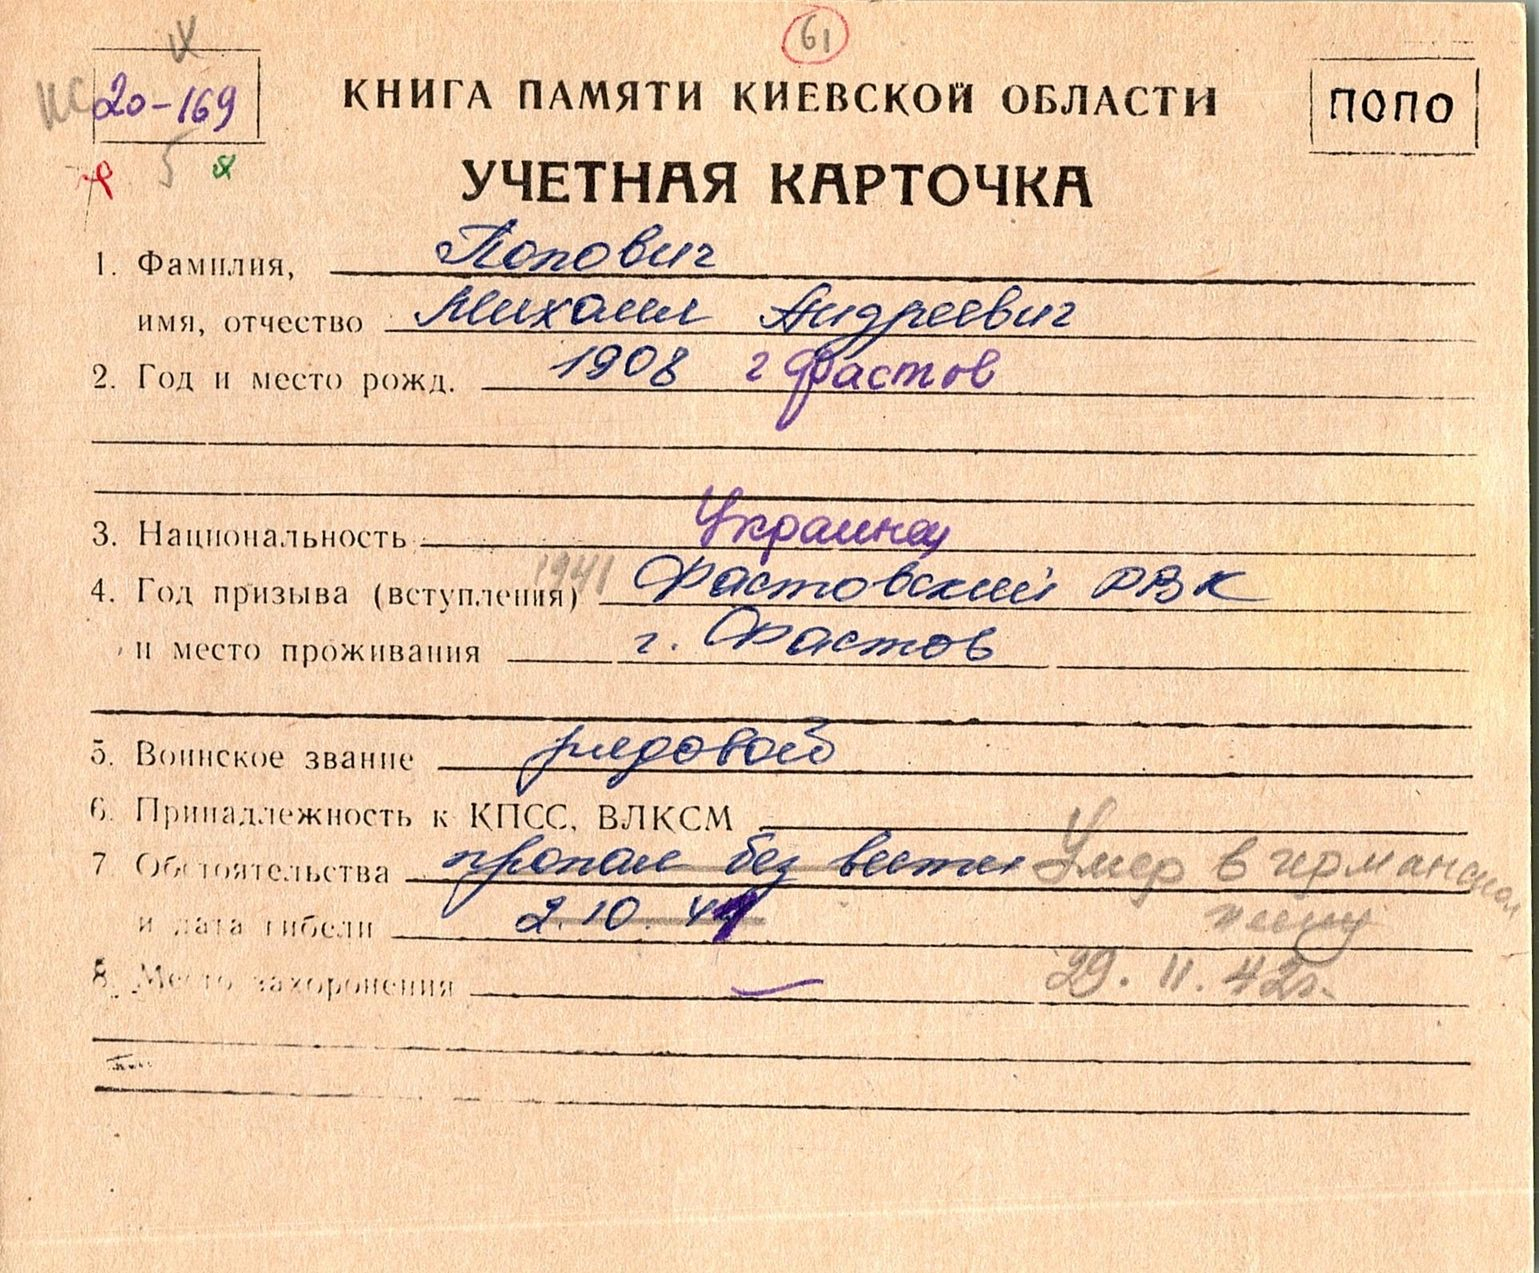 61
ИС 20-169
КНИГА ПАМЯТИ КИЕВСКОЙ ОБЛАСТИ
ПОПО
5
УЧЕТНАЯ КАРТОЧКА
1. Фамилия, Попович
имя, отчество Михаил Андреевич
2. Год и место рожд. 1908 г Фастов
3. Национальность Украинец
4. Год призыва (вступления) 1941 Фастовский РВК
и место проживания г. Фастов
5. Воинское звание рядовой
6. Принадлежность к КПСС, ВЛКСМ
7. Обстоятельства пропал без вести Умер в германском
и дата гибели 2.10.41 плену
8. Место захоронения — 29.11.42г.